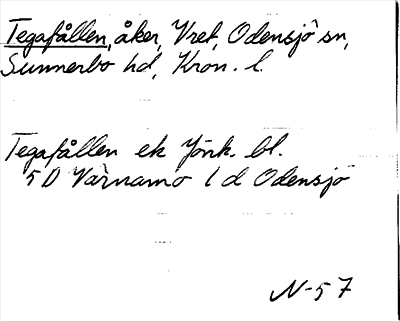 Tegafållen, åker, Vret, Odensjö sn,
Sunnerbo hd, Kron. l.
Tegafållen ek Jönk. bl.
5 D Värnamo 1 d Odensjö
N-57